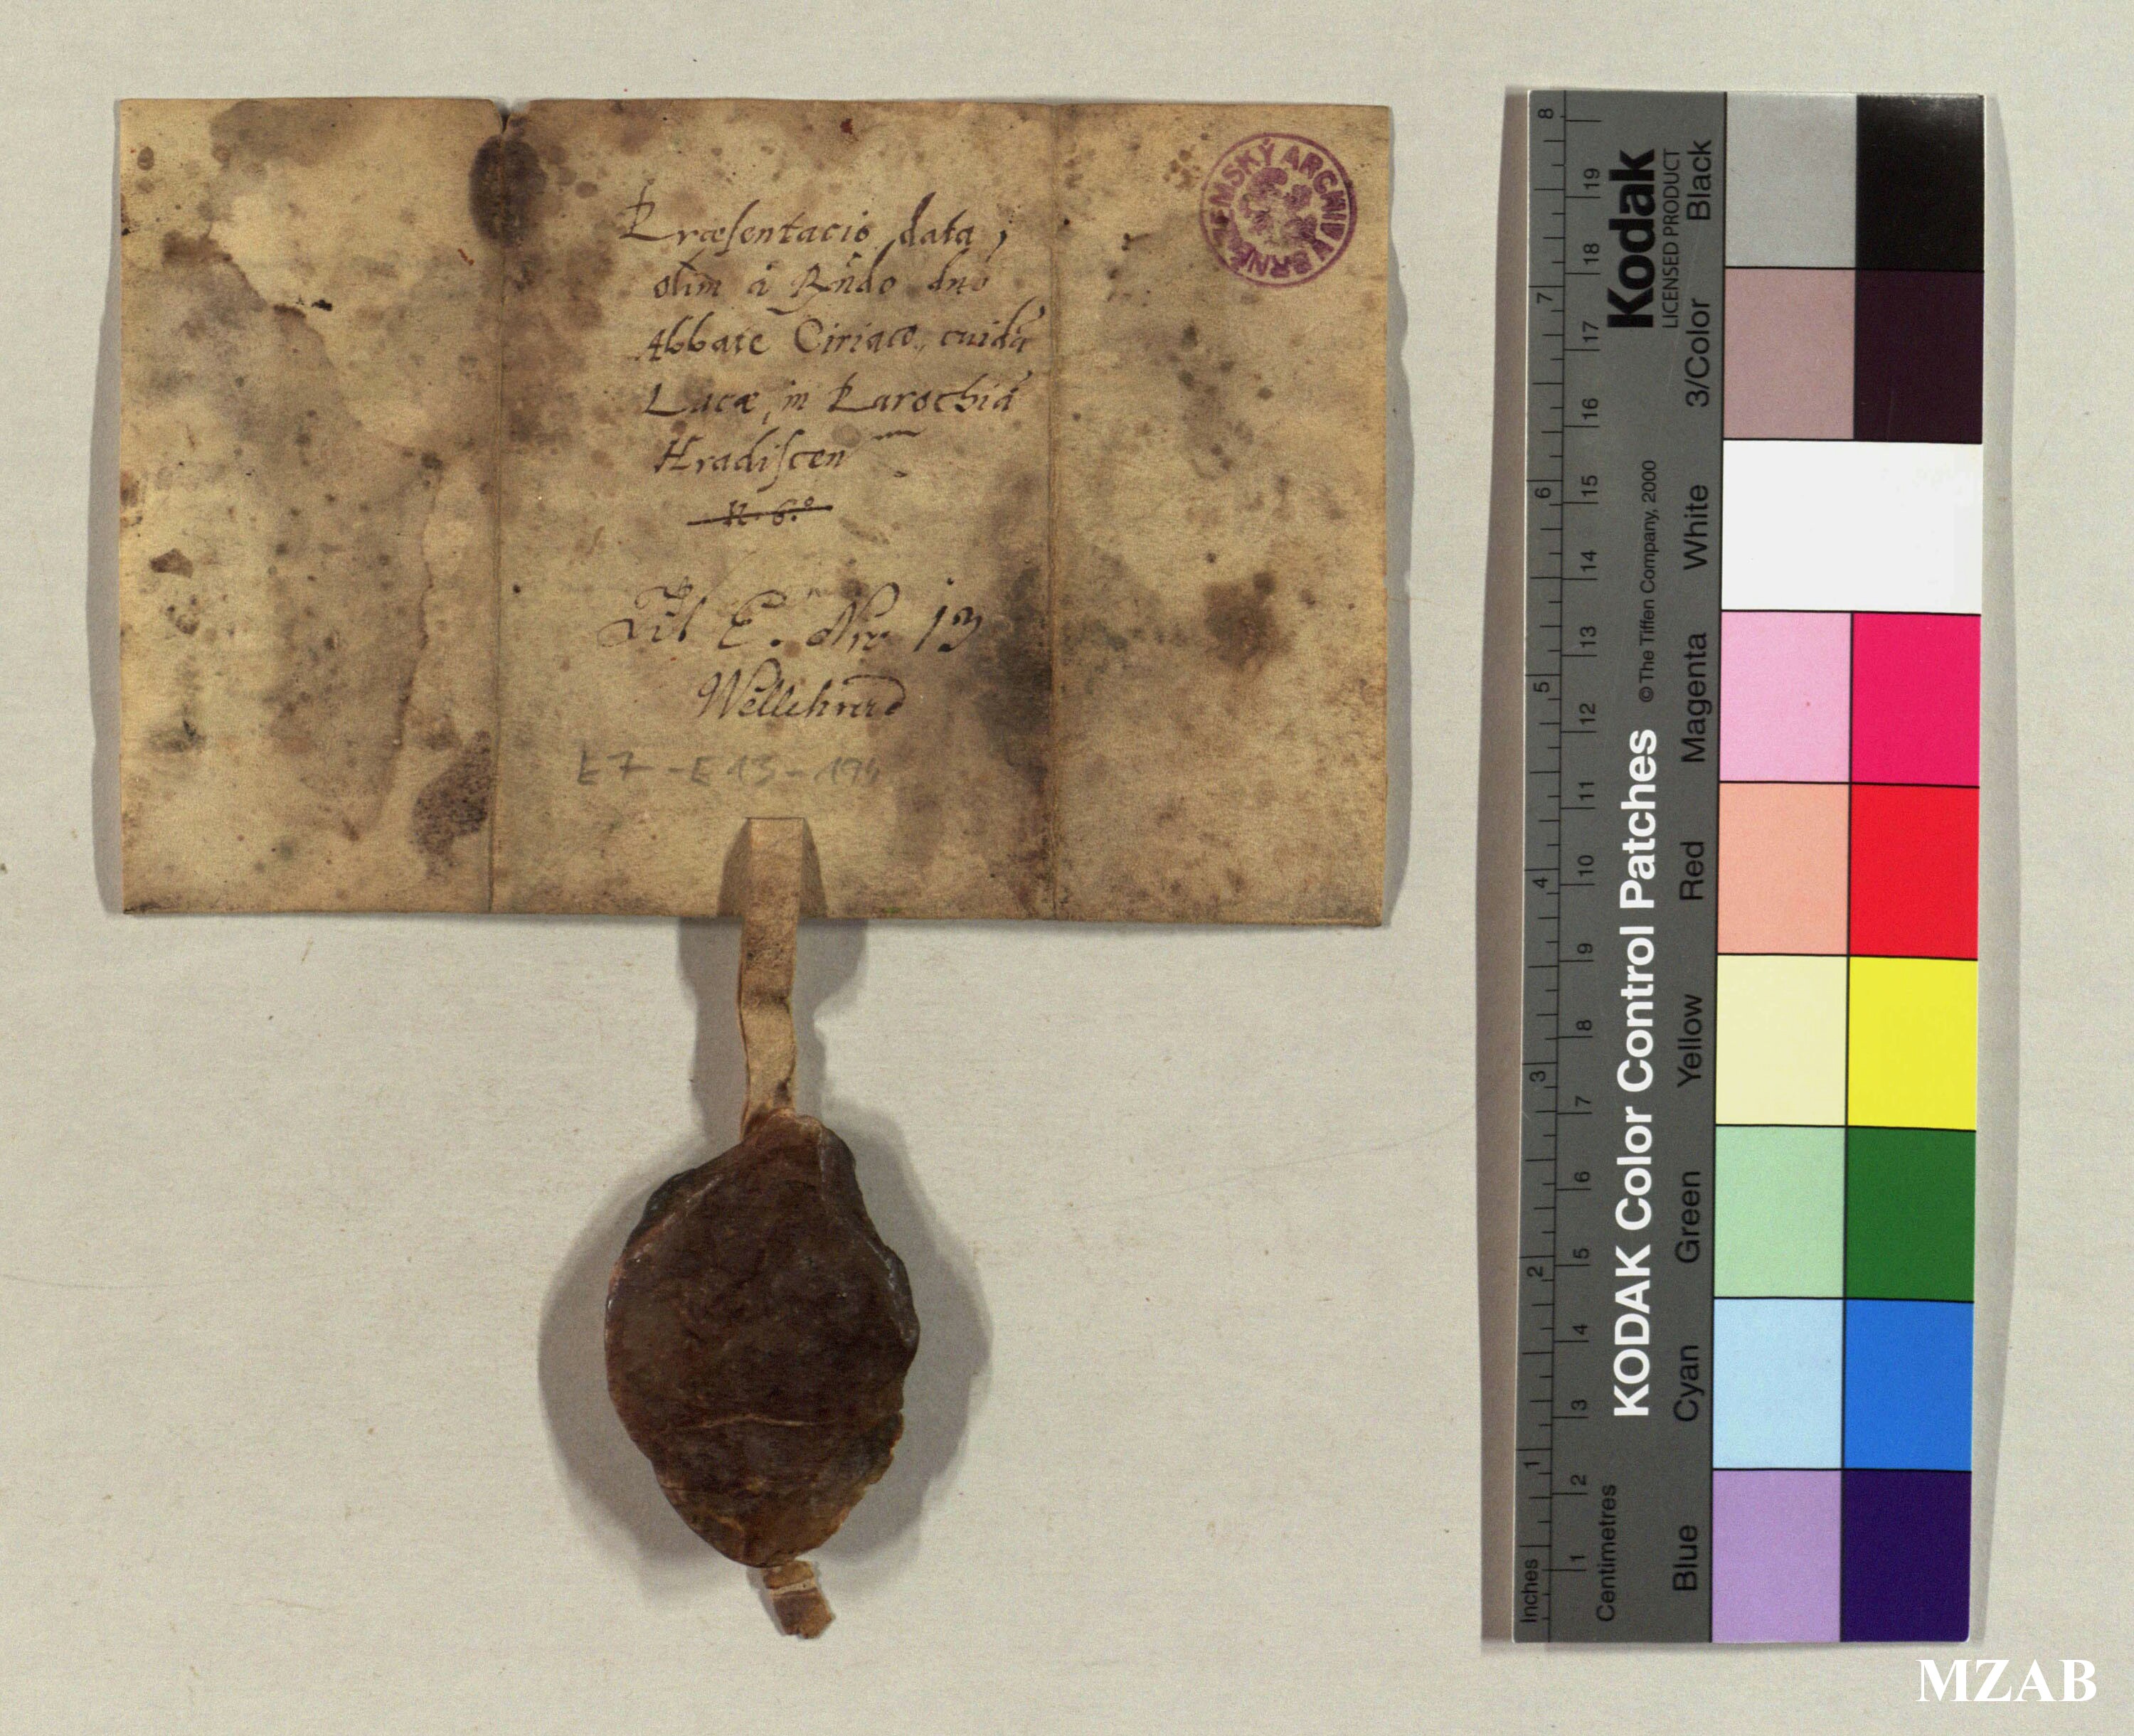 Præsentacio data,
olim à Rñdo dno
Abbate Ciriaco, cuidã
Lucæ, in Parochiã
Hradiscen
N. 6.º
Lit E. Nro 13
Wellehrad
E7 - E 13 -
ZEMSKÝ ARCHIV V BRNĚ
Kodak
LICENSED PRODUCT
KODAK Color Control Patches © The Tiffen Company, 2000
Inches 1 2 3 4 5 6 7 8
Centimetres 1 2 3 4 5 6 7 8 9 10 11 12 13 14 15 16 17 18 19
Blue Cyan Green Yellow Red Magenta White 3/Color Black
MZAB